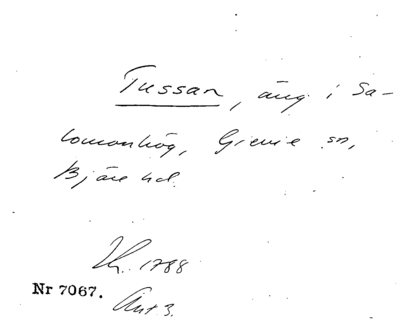 Tussan, äng i Sa-
lomonhög, Grevie sn,
Bjäre hd.
1788
Nr 7067.
Akt 3.